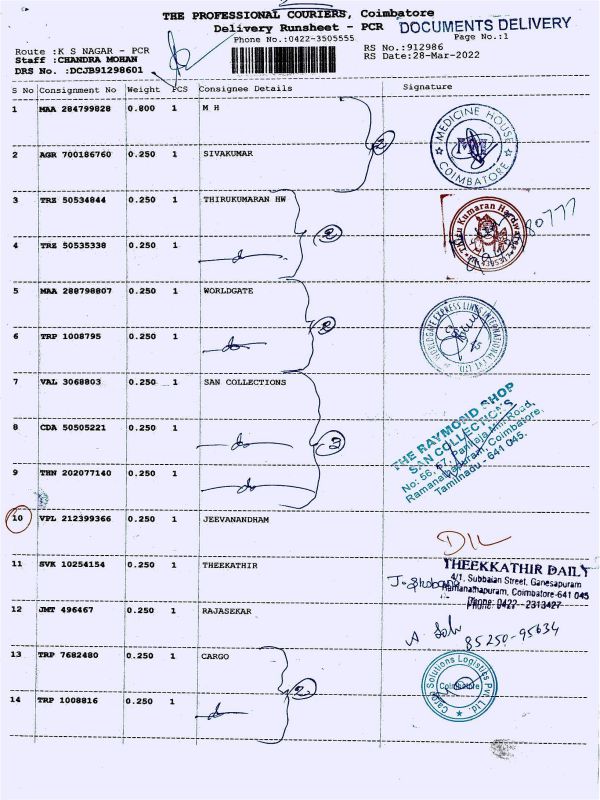 THE PROFESSIONAL COURIERS, Coimbatore
Delivery Runsheet - PCR DOCUMENTS DELIVERY
Phone No.:0422-3505555 Page No.:1
Route :K S NAGAR - PCR RS No.:912986
Staff :CHANDRA MOHAN RS Date:28-Mar-2022
DRS No. :DCJB91298601
S No Consignment No Weight PCS Consignee Details Signature
1 MAA 284799828 0.800 1 M H
MEDICINE HOUSE COIMBATORE
2 AGR 700186760 0.250 1 SIVAKUMAR
2
3 TRZ 50534844 0.250 1 THIRUKUMARAN HW
Thiru Kumaran Hardwares
80777
4 TRZ 50535338 0.250 1 do
2
5 MAA 288798807 0.250 1 WORLDGATE
WORLDGATE EXPRESS LINES INTERNATIONAL PVT LTD
6 TRP 1008795 0.250 1 do
2
7 VAL 3068803 0.250 1 SAN COLLECTIONS
THE RAYMOND SHOP
SAN COLLECTIONS
No: 56, 57, Pankaja Mill Road,
Ramanathapuram, Coimbatore.
Tamilnadu - 641 045.
8 CDA 50505221 0.250 1 do
3
9 THN 202077140 0.250 1 do
10 VPL 212399366 0.250 1 JEEVANANDHAM
D/L
11 SVK 10254154 0.250 1 THEEKATHIR
THEEKKATHIR DAILY
4/1, Subbaian Street, Ganesapuram
Ramanathapuram, Coimbatore-641 045
Phone: 0422 - 2313427
12 JMT 496467 0.250 1 RAJASEKAR
85250-95634
13 TRP 7682480 0.250 1 CARGO
Cargo Solutions Logistics Pvt. Ltd.
Coimbatore
14 TRP 1008816 0.250 1 do
2